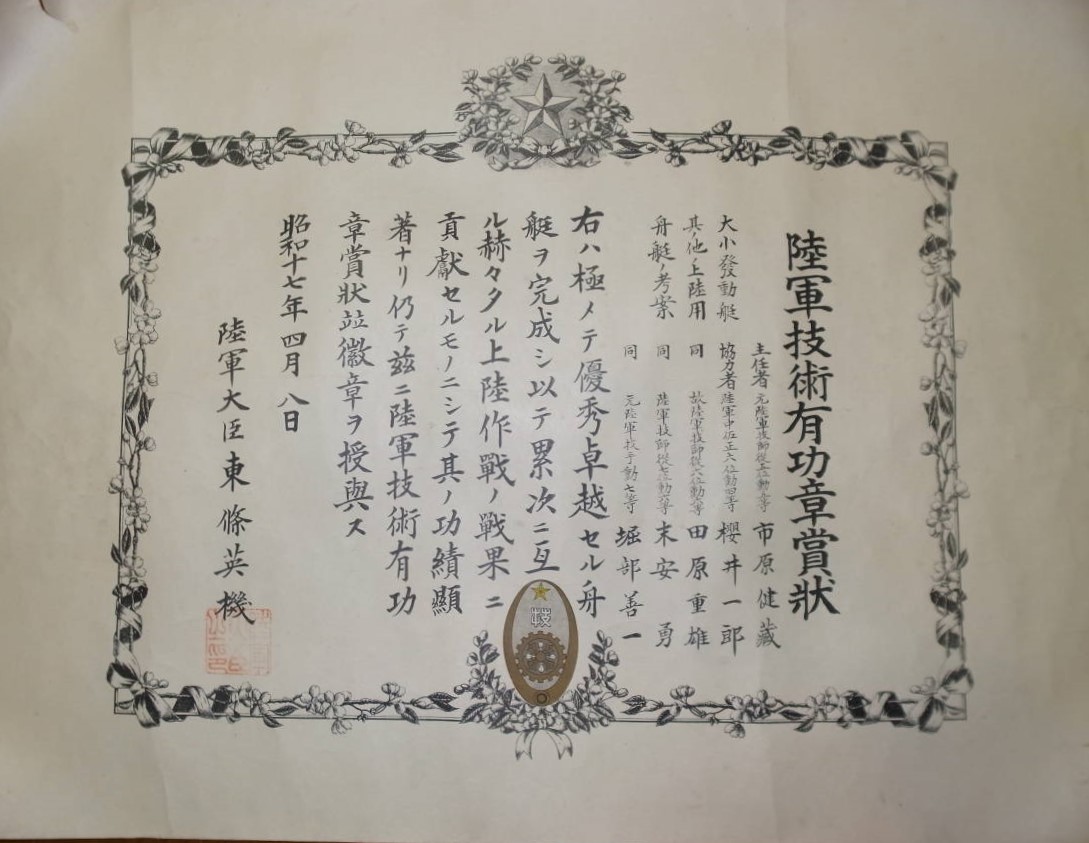 陸軍技術有功章賞狀
主任者 元陸軍技師從五位勳五等 市原健藏
大小發動艇 協力者 陸軍中佐正六位勳四等 櫻井一郎
其ノ他ノ上陸用 同 故陸軍技師從六位勳六等 田原重雄
舟艇ノ考案 同 陸軍技師從七位勳六等 末安勇
同 元陸軍技手勳七等 堀部善一
右ハ極メテ優秀卓越セル舟
艇ヲ完成シ以テ累次ニ亙
ル赫々タル上陸作戰ノ戰果ニ
貢獻セルモノニシテ其ノ功績顯
著ナリ仍テ茲ニ陸軍技術有功
章賞狀竝徽章ヲ授與ス
昭和十七年四月八日
陸軍大臣東條英機
技